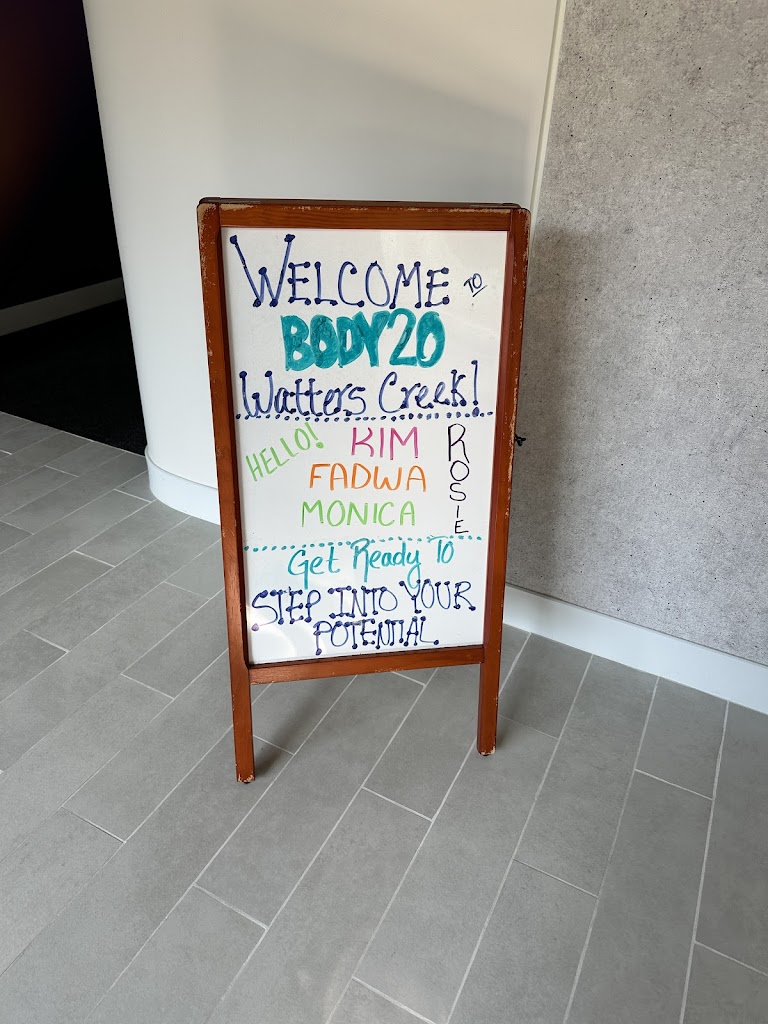 WELCOME TO
BODY20
Watters Creek!
HELLO! KIM
FADWA
MONICA
ROSIE
Get Ready To
STEP INTO YOUR
POTENTIAL